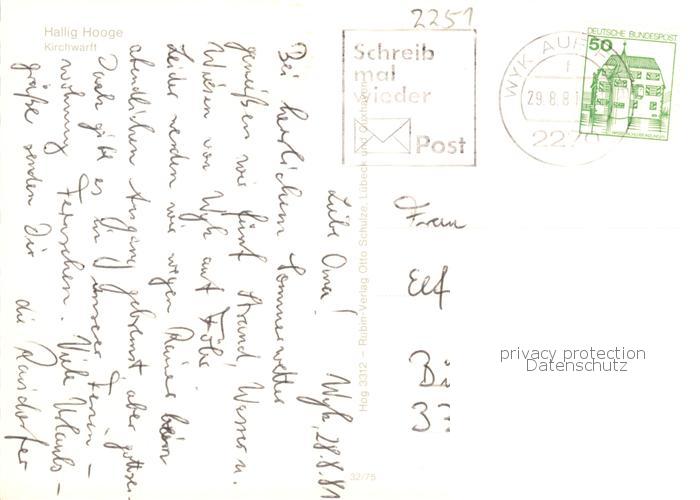 Hallig Hooge
Kirchwarft
2251
Schreib
mal
wieder
Post
WYK AUF
29.8.81
2270
DEUTSCHE BUNDESPOST
50
Wyk, 28.8.81
Liebe Oma!
Bei herrlichem Sommerwetter
genießen wir fünf Strand, Wasser u.
Wiesen von Wyk auf Föhr.
Leider werden wir wegen Rainer beim
abendlichen Ausgang gebremst, aber
Doch gibt es in unserer Ferien-
wohnung Fernsehen. Viele Urlaubs-
grüße senden Dir die
Hog 3312 – Rubin-Verlag Otto Schulze, Lübeck und Cuxhaven
32/75
Frau
privacy protection
Datenschutz